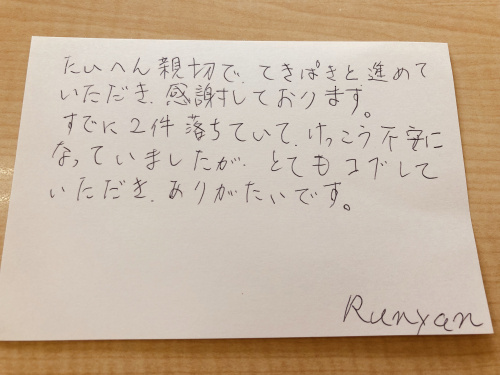 たいへん親切で、てきぱきと進めて
いただき、感謝しております。
すでに2件落ちていて、けっこう不安に
なっていましたが、とてもコブして
いただき、ありがたいです。
Runyan